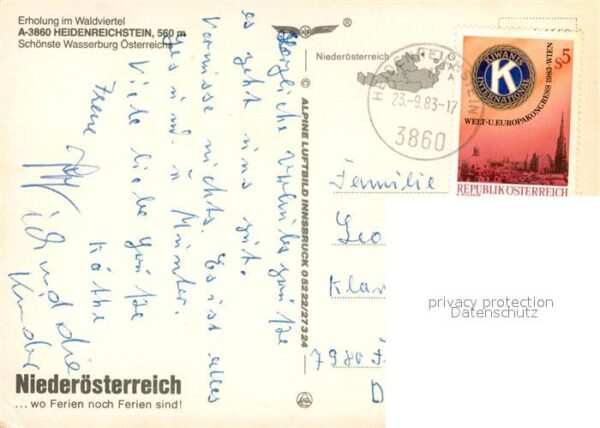 Erholung im Waldviertel
A-3860 HEIDENREICHSTEIN, 560 m
Schönste Wasserburg Österreichs
®
Niederösterreich
HEIDENREICHSTEIN
23.-9.83-17
3860
KIWANIS
K
INTERNATIONAL
WELT-U.EUROPAKONGRESS 1983-WIEN
S5
REPUBLIK ÖSTERREICH
© ALPINE LUFTBILD INNSBRUCK 05222/27324
Herzliche Urlaubsgrüße
es geht uns gut.
Vermisse nichts. Es ist alles
gesund u. munter.
Viele liebe Grüße
Käthe
und die
Kinder
Familie
Leo
Klan
7980
D
privacy protection
Datenschutz
Niederösterreich
...wo Ferien noch Ferien sind!